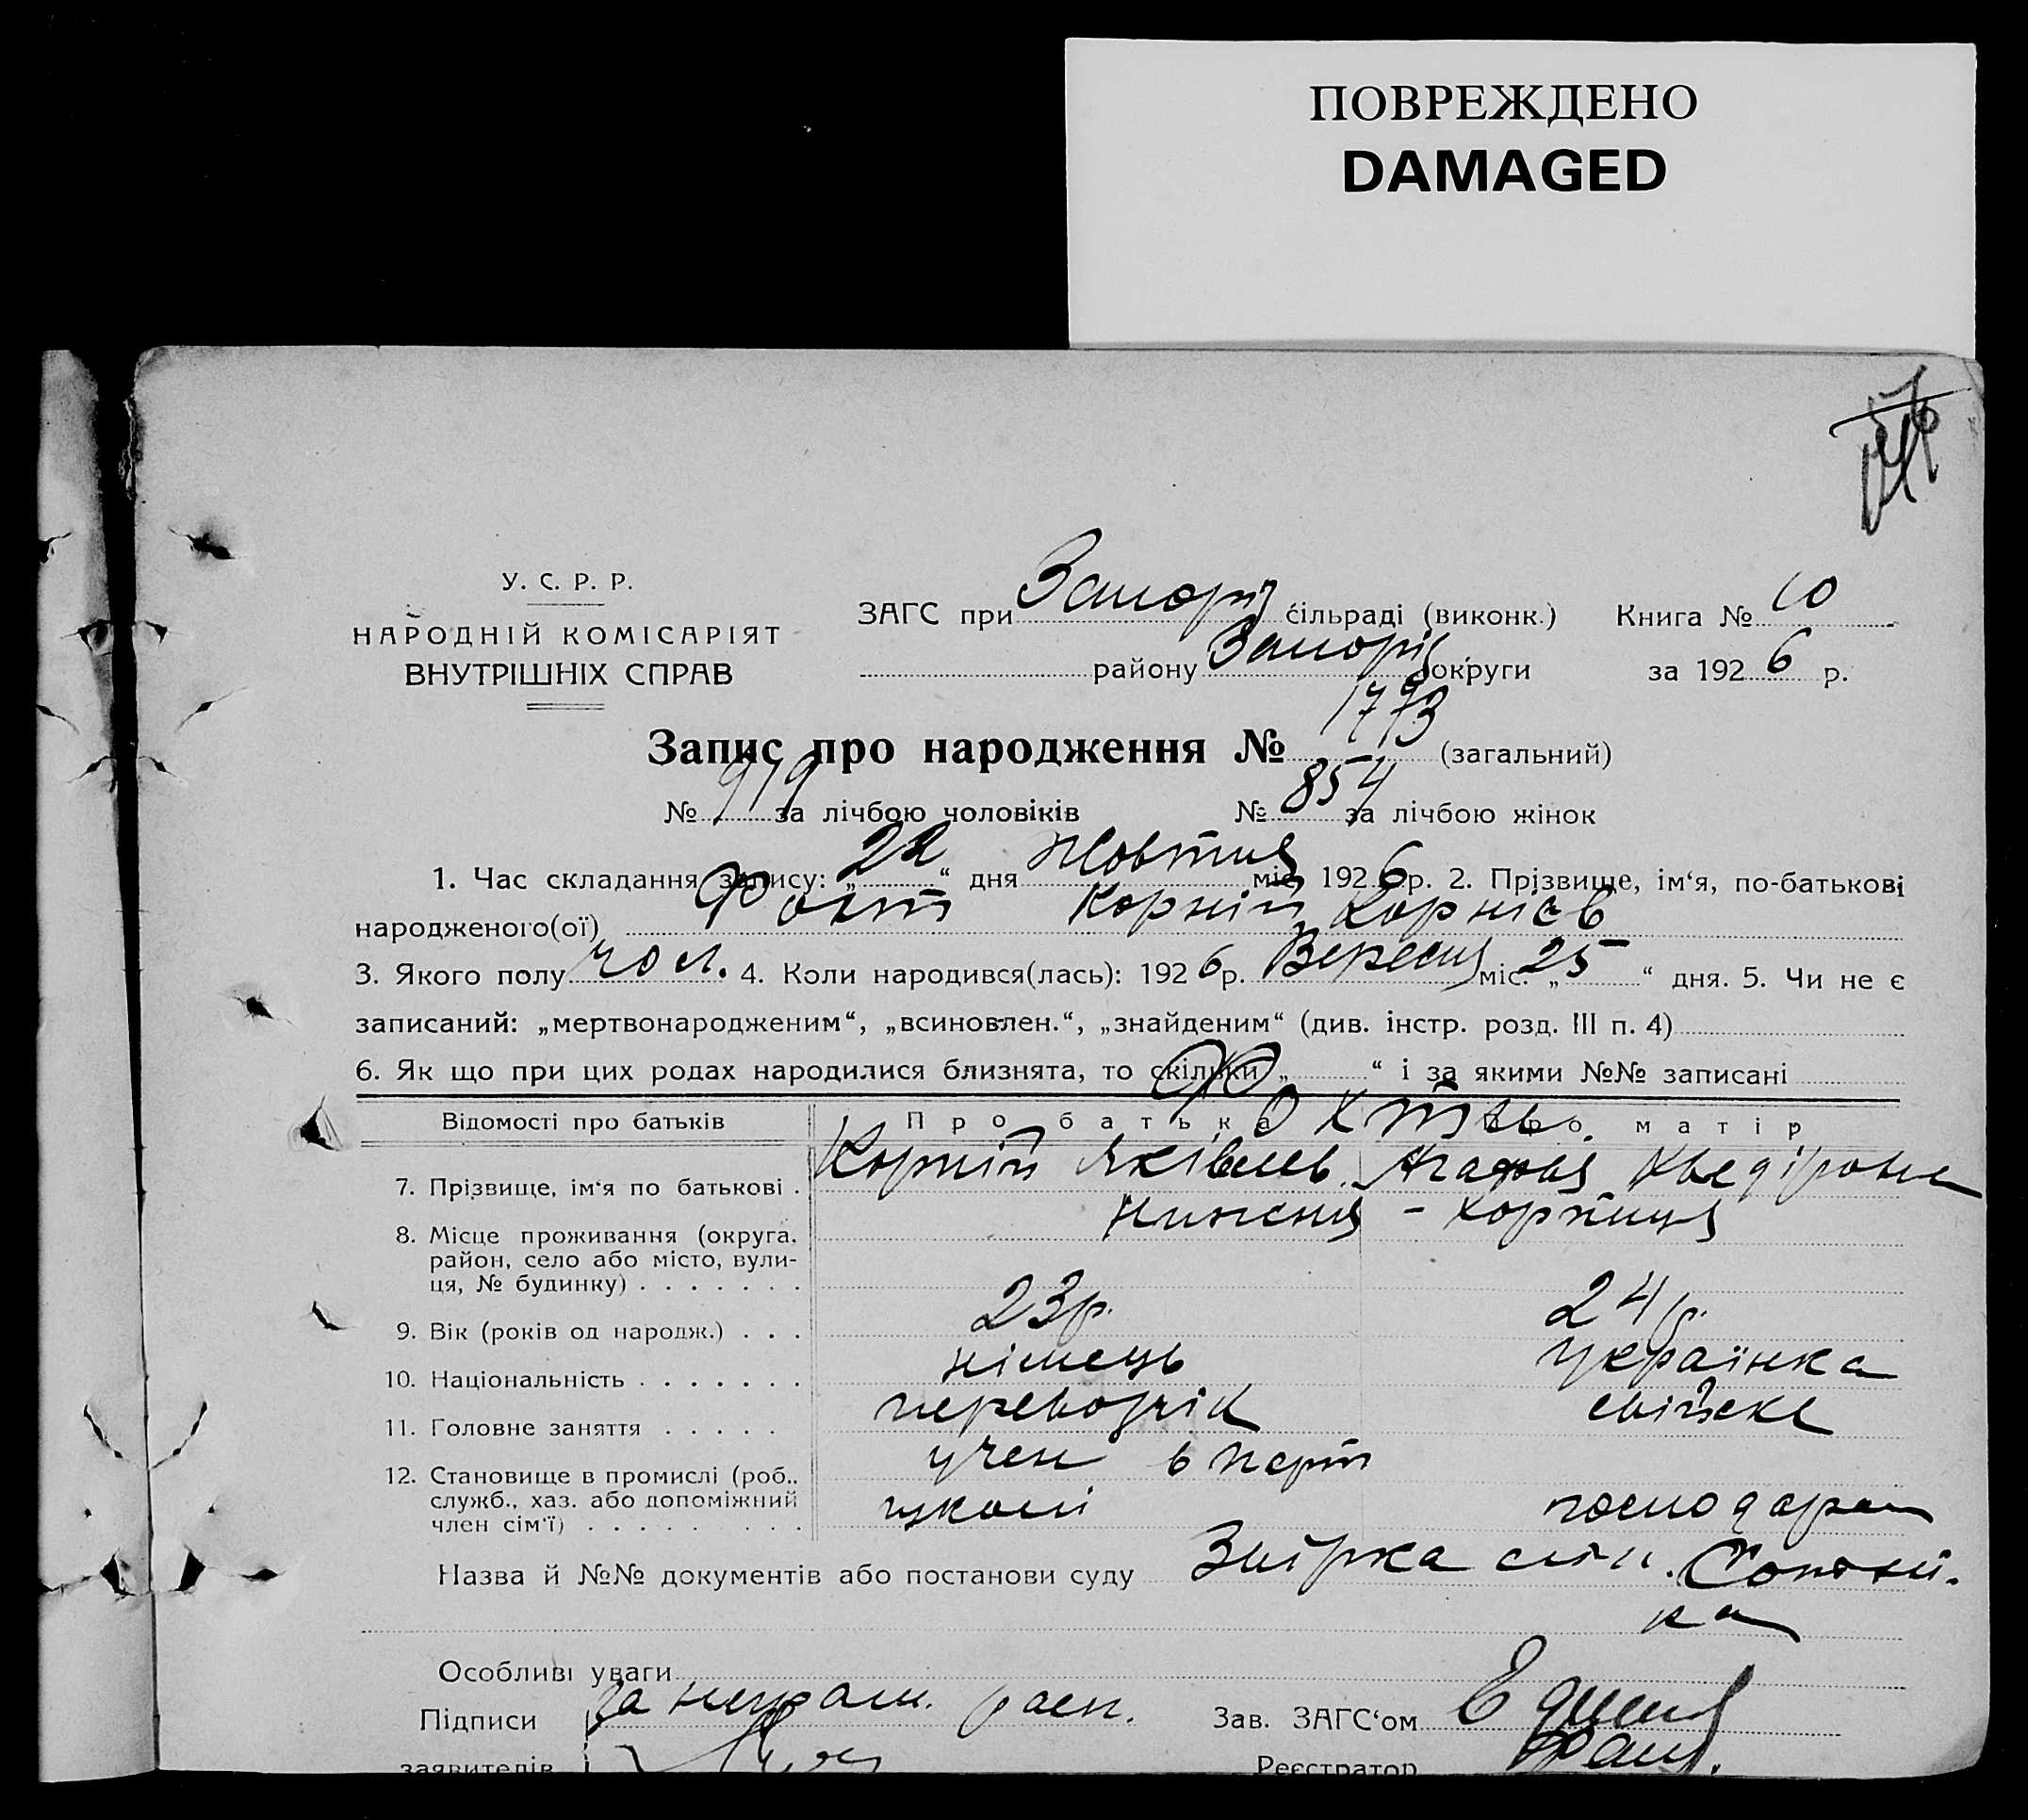 ПОВРЕЖДЕНО
DAMAGED
У. С. Р. Р.
НАРОДНІЙ КОМІСАРІЯТ
ВНУТРІШНІХ СПРАВ
ЗАГС при Запоріз сільраді (виконк.) Книга № 10
району Запоріз округи за 1926 р.
Запис про народження № 1773 (загальний)
№ 919 за лічбою чоловіків № 854 за лічбою жінок
1. Час складання запису: „22“ дня Жовтня міс. 1926 р. 2. Прізвище, ім‘я, по-батькові
народженого(ої) Корній Корнієв
3. Якого полу чол. 4. Коли народився(лась): 1926 р. Вересня міс. „25“ дня. 5. Чи не є
записаний: „мертвонародженим“, „всиновлен.“, „знайденим“ (див. інстр. розд. III п. 4)
6. Як що при цих родах народилися близнята, то скільки „ “ і за якими №№ записані
Відомості про батьків Про батька Про матір
7. Прізвище, ім‘я по батькові . Корній Яківлев. Агафія
8. Місце проживання (округа, Нижня - Хортиця
район, село або місто, вули-
ця, № будинку) . . . . . . .
9. Вік (років од народж.) . . . 23 р. 24 р.
10. Національність . . . . . . . німець українка
11. Головне заняття . . . . . перевозчік
12. Становище в промислі (роб., учен в парт
служб., хаз. або допоміжний школі господарка
член сім‘ї) . . . . . . . . .
Назва й №№ документів або постанови суду
Особливі уваги
Підписи за неграм. расп. Зав. ЗАГС‘ом
заявителів Реєстратор